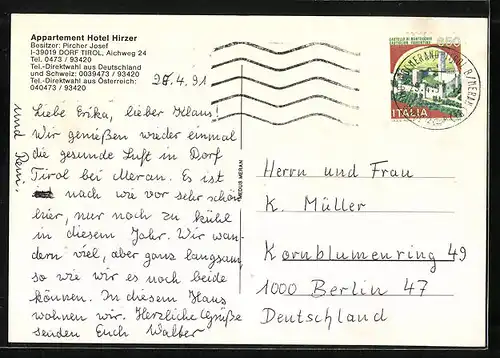 Appartement Hotel Hirzer
Besitzer: Pircher Josef
I-39019 DORF TIROL, Aichweg 24
Tel. 0473 / 93420
Tel.-Direktwahl aus Deutschland
und Schweiz: 0039473 / 93420
Tel.-Direktwahl aus Österreich:
040473 / 93420
28.4.91
Liebe Erika, lieber Klaus!
Wir genießen wieder einmal
die gesunde Luft in Dorf
Tirol bei Meran. Es ist
nach wie vor sehr schön
hier, nur noch zu kühl
in diesem Jahr. Wir wan-
dern viel, aber ganz langsam,
so wie wir es noch beide
können. In diesem Haus
wohnen wir. Herzliche Grüße
senden Euch Walter
und
MEDUS MERAN
CASTELLO DI MONTECCHIO
CASTIGLION FIORENTINO
650
ITALIA
Herrn und Frau
K. Müller
Kornblumenring 49
1000 Berlin 47
Deutschland